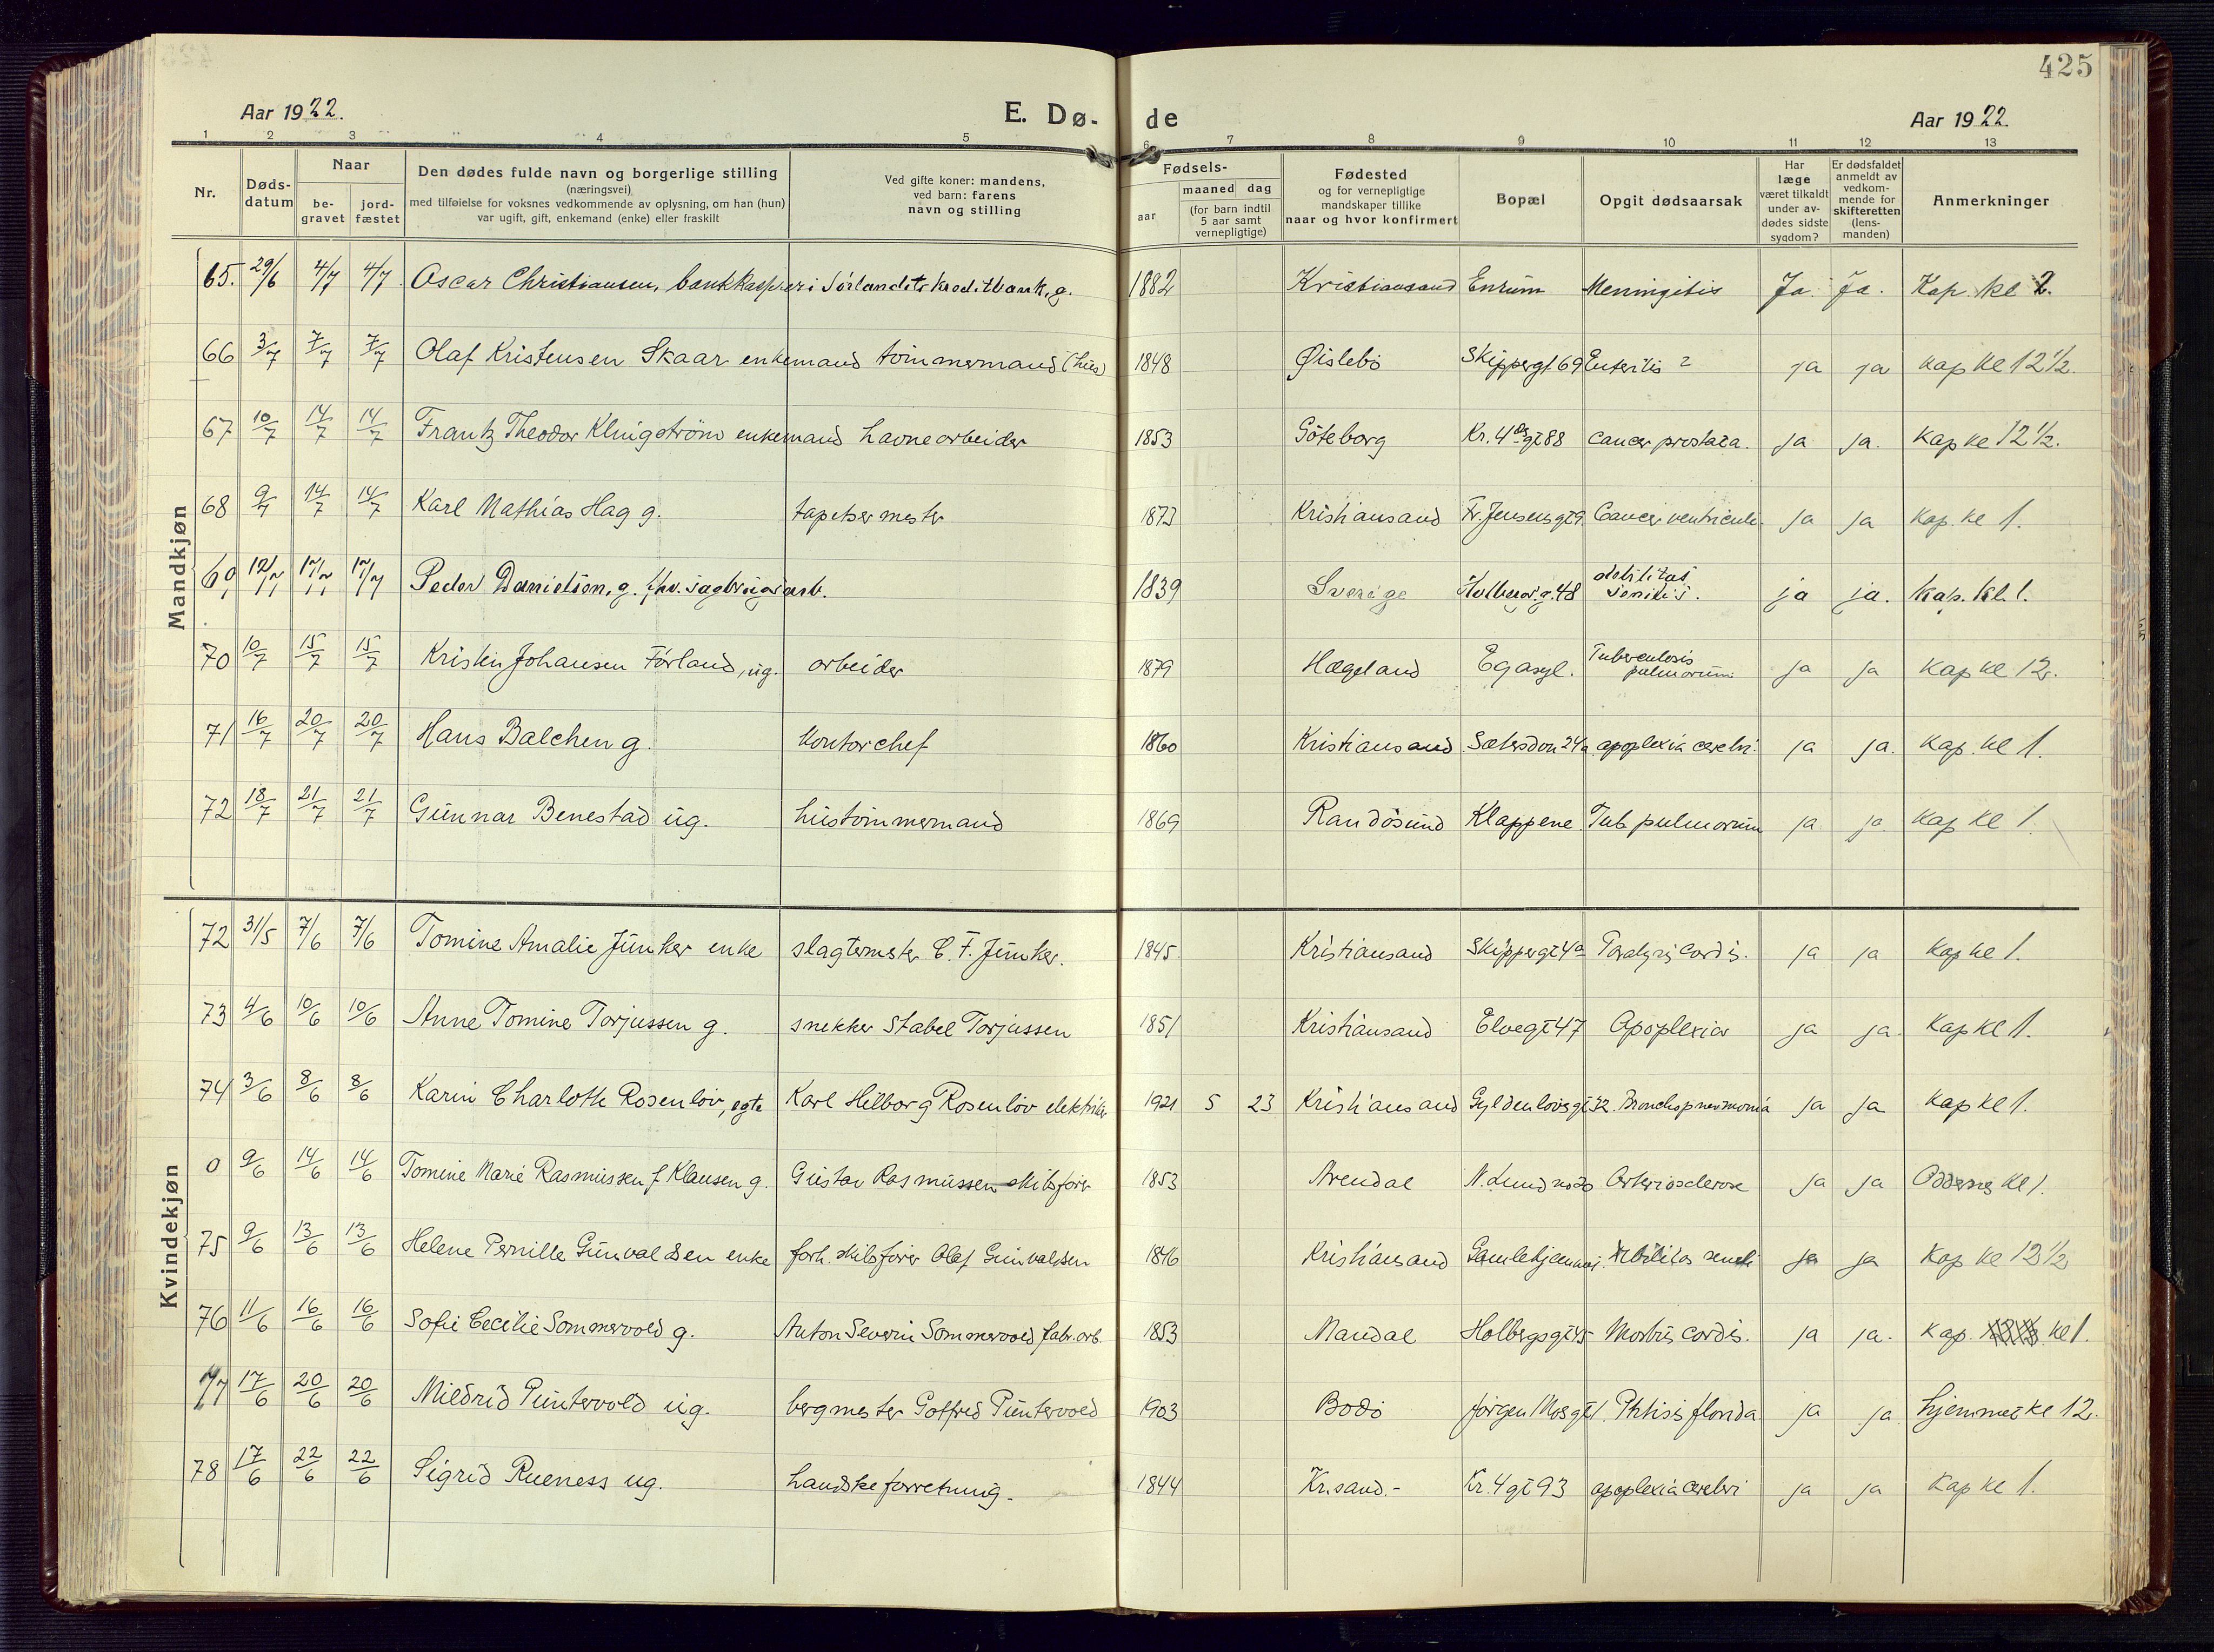 425
Aar 1922.
E. Dø-
de
Aar 1922.
1 2 3 4 5 6 7 8 9 10 11 12 13
Nr.
Døds-
datum
Naar
be-
gravet
jord-
fæstet
Den dødes fulde navn og borgerlige stilling
(næringsvei)
med tilføielse for voksnes vedkommende av oplysning, om han (hun)
var ugift, gift, enkemand (enke) eller fraskilt
Ved gifte koner: mandens,
ved barn: farens
navn og stilling
Fødsels-
aar
maaned dag
(for barn indtil
5 aar samt
vernepligtige)
Fødested
og for vernepligtige
mandskaper tillike
naar og hvor konfirmert
Bopæl
Opgit dødsaarsak
Har
læge
været tilkaldt
under av-
dødes sidste
sygdom?
Er dødsfaldet
anmeldt av
vedkom-
mende for
skifteretten
(lens-
manden)
Anmerkninger
Mandkjøn
65. 29/6 4/7 4/7 Oscar Christiansen, bankkasserer i Sørlandets kreditbank, g. 1882 Kristiansand Enrum Meningitis Ja. Ja. Kap. kl 2.
66 3/7 7/7 7/7 Olaf Kristensen Skaar enkemand tømmermand (hus) 1848 Øislebø Skippergt. 69 Enteritis ? ja ja Kap kl 12 1/2.
67 10/7 14/7 14/7 Frantz Theodor Klingstrøm enkemand havnearbeider 1853 Göteborg Kr. 4des gt 88 Cancer prostata. ja ja. Kap kl 12 1/2.
68 9/7 14/7 14/7 Karl Mathias Hag g. tapetsermester 1873 Kristiansand Fr. Jensensgt 9 Cancer ventriculi. ja ja Kap. kl 1.
69 12/7 17/7 17/7 Peder Danielsen, g. fhv. sagbrugsarb. 1839 Sverige Holbergs.g. 48 debilitas senilis. ja ja. Kap. kl. 1.
70 10/7 15/7 15/7 Kristen Johansen Førland, ug. arbeider 1879 Hægeland Egasyl. Tuberculosis pulmorum. ja ja Kap kl 12.
71 16/7 20/7 20/7 Hans Balchen g. kontorchef 1860 Kristiansand Sætersdøn 24a apoplexia cerebri. ja ja. Kap. kl 1.
72 18/7 21/7 21/7 Gunnar Benestad ug. hustømmermand 1869 Randøsund Klappene. Tub. pulmorum ja ja. Kap kl 1.
Kvindekjøn
72 31/5 7/6 7/6 Tomine Amalie Junker enke slagtermester C. F. Junker. 1845. Kristiansand Skippergt 4a Paralysis cordis. ja ja Kap kl 1.
73 4/6 10/6 10/6 Anne Tomine Torjussen g. snekker Stabel Torjussen 1851 Kristiansand Elvegt 47 Apoplexia ja ja. Kap kl 1.
74 3/6 8/6 8/6 Karin Charlotte Rosenløv, egte Karl Hilborg Rosenløv elektriker 1921 5 23 Kristiansand Gyldenløvesgt 32. Bronchopneumonia ja ja Kap kl 1.
0 9/6 14/6 14/6 Tomine Marie Rasmussen f Klausen g. Gustav Rasmussen skibsfører 1853 Arendal N. Lund no 20 Arteriosclerose ja ja Oddernes kl 1.
75 9/6 13/6 13/6 Helene Pernille Gunvaldsen enke forh. skibsfører Olaf Gunvaldsen 1846 Kristiansand Gamlehjemmet. debilitas senili ja ja Kap kl 12 1/2
76 11/6 16/6 16/6 Sofie Cecilie Sommervold g. Anton Severin Sommervold fabr.arb. 1853 Mandal Holbergsgt 45 Morbus cordis. ja ja. Kap. kl 1.
77 17/6 20/6 20/6 Mildrid Puntervold ug. bergmester Gotfred Puntervold 1903 Bodø Jørgen Moesgt 1. Phtisis florida ja ja hjemmet kl 12.
78 17/6 22/6 22/6 Sigrid Rueness ug. handskeforretning. 1844 Kr.sand.- Kr. 4 gt 93 apoplexia cerebri ja ja Kap kl 1.